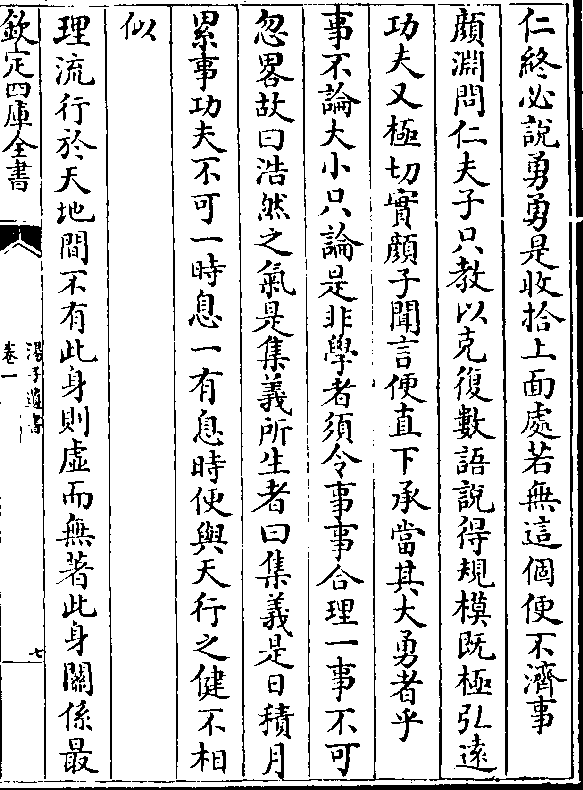 仁終必說勇勇是收拾上面處若無這個便不濟事
顔淵問仁夫子只教以克復數語說得規模既極弘遠
功夫又極切實顔子聞言便直下承當其大勇者乎
事不論大小只論是非學者須令事事合理一事不可
忽畧故曰浩然之氣是集義所生者曰集義是日積月
累事功夫不可一時息一有息時便與天行之健不相
似
理流行於天地間不有此身則虛而無著此身關係最
欽定四庫全書
湯子遺書
卷一
七